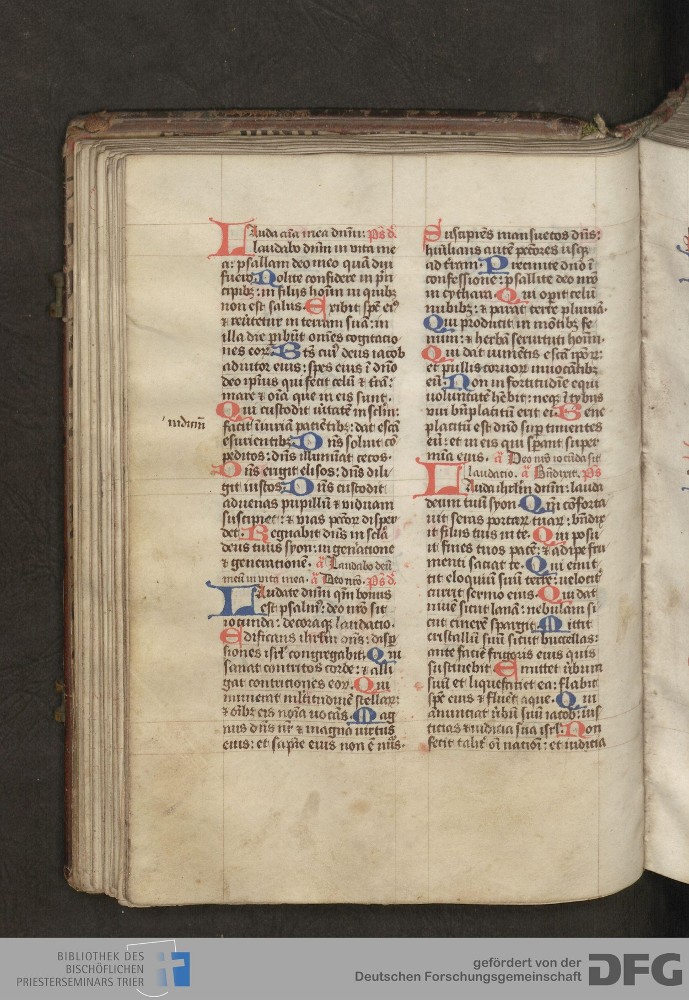 Lauda aīa mea dn̄m: ps̄ d.
laudabo dn̄m in vita me
a: psallam deo meo quā diu
fuero Nolite confidere in prī
cipibꝫ: in filijs hom̄ in quibꝫ
non est salus. Exibit sp̄s eiꝰ
⁊ reūtetur in terram suā: in
illa die p̄ibūt om̄es cogitacio
nes eoꝝ. Bt̄s cuiꝰ deus iacob
adiutor eius: spes eius ī dn̄o
deo ip̄ius qui fecit celū ⁊ trā:
mare ⁊ oīa que in eis sunt.
Qui custodit ūitatē in sclm̄:
facit iniuriā patiētibꝫ: dat escā
esurientibꝫ Dn̄s soluit cō
peditos: dn̄s illumiat cecos.
Dn̄s erigit elisos: dn̄s dili
git iustos Dn̄s custodit
aduenas pupillū ⁊ viduam
suscipiet: ⁊ vias peccōꝝ disper
det. Regnabit dn̄s in sclā
deus tuus syon: in gen̄atione
⁊ generationē. a᷈ Laudabo deū
meū in vita mea. a᷈ Deo nr̄o. Ps̄ d.
Laudate dn̄m qm̄ bonus
est psalmꝰ: deo nr̄o sit
iocunda: decoraqꝫ laudatio.
Edificans ihrlm̄ dn̄s: disp̄
siones isrl̓ congregabit. Qui
sanat contritos corde: ⁊ alli
gat contriciones eoꝝ. Qui
numerat mltitudinē stellaꝝ:
⁊ oībꝫ eis noīa vocās. Mag
nus dn̄s nr̄ ⁊ magna virtus
eius: et sapīe eius non ē nūs.
Suscipiēs mansuetos dn̄s:
hūilians autē pccōres usqꝫ
ad trāam. Precinite dn̄o ī
confessione: psallite deo nr̄o
in cythara. Qui op̄it celū
nubibꝫ: ⁊ parat terre pluuiā.
Qui producit in mōtibꝫ fe
num: ⁊ herbā seruituti hom̄.
Qui dat iumētis escā ip̄oꝝ:
et pullis coruoꝝ inuocātibꝫ
eū. Non in fortitudīe equi
voluntatē hēbit: neqꝫ ī tybijs
viri bn̄placitū erit ei. Bene
placitū est dn̄o sup timentes
eū: et in eis qui sp̄ant super
mīa eius. a᷈ Deo nr̄o iocūda sit
laudatio. a᷈ Bn̄dixit. Ps̄
Lauda ihrlm̄ dn̄m: lauda
deum tuū syon. Qm̄ cōforta
uit seras portaꝝ tuaꝝ: bn̄dix
it filijs tuis in te. Qui posu
it fines tuos pacē: ⁊ adipe fru
menti saciat te. Qui emit
tit eloquiū suū terre: velocit̄
currit sermo eius. Qui dat
niuē sicut lanā: nebulam si
cut cinerē spargit. Mittit
cristallū suū sicut buccellas:
ante faciē frigoris eius quis
sustinebit. Emittet ūbum
suū et liquefaciet ea: flabit
sp̄s eius ⁊ fluēt aque. Qui
anunciat ūbū suū iacob: ius
ticias ⁊ iudicia sua isrl̓. Non
fecit talit̄ oī nationi: et iudicia
BIBLIOTHEK DES
BISCHÖFLICHEN
PRIESTERSEMINARS TRIER
gefördert von der
Deutschen Forschungsgemeinschaft
DFG